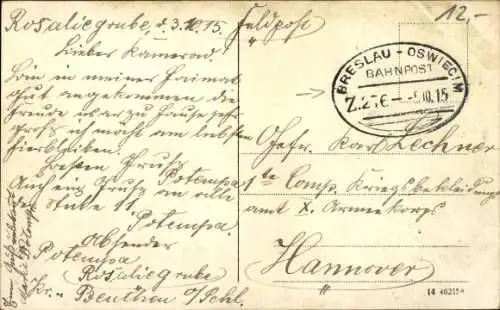 Rosaliegrube, d. 3.10.15.
Lieber Kamerad.
Bin in meiner Heimat
gut angekommen die
Freude war zu Hause sehr
groß ich möcht am liebsten
hierbleiben.
Besten Gruß
Potempa
Auch einen Gruß an alle
der Stube 11
Potempa.
Absender
Potempa
Rosaliegrube
Kr. Beuthen o/Schl.
Feldpost
12,-
BRESLAU - OSWIECIM
BAHNPOST
Z.276 - 3.10.15
Gefr. Karl Lechner
1te Comp. Kriegsbekleidungs
amt X. Armeekorps
Hannover
14